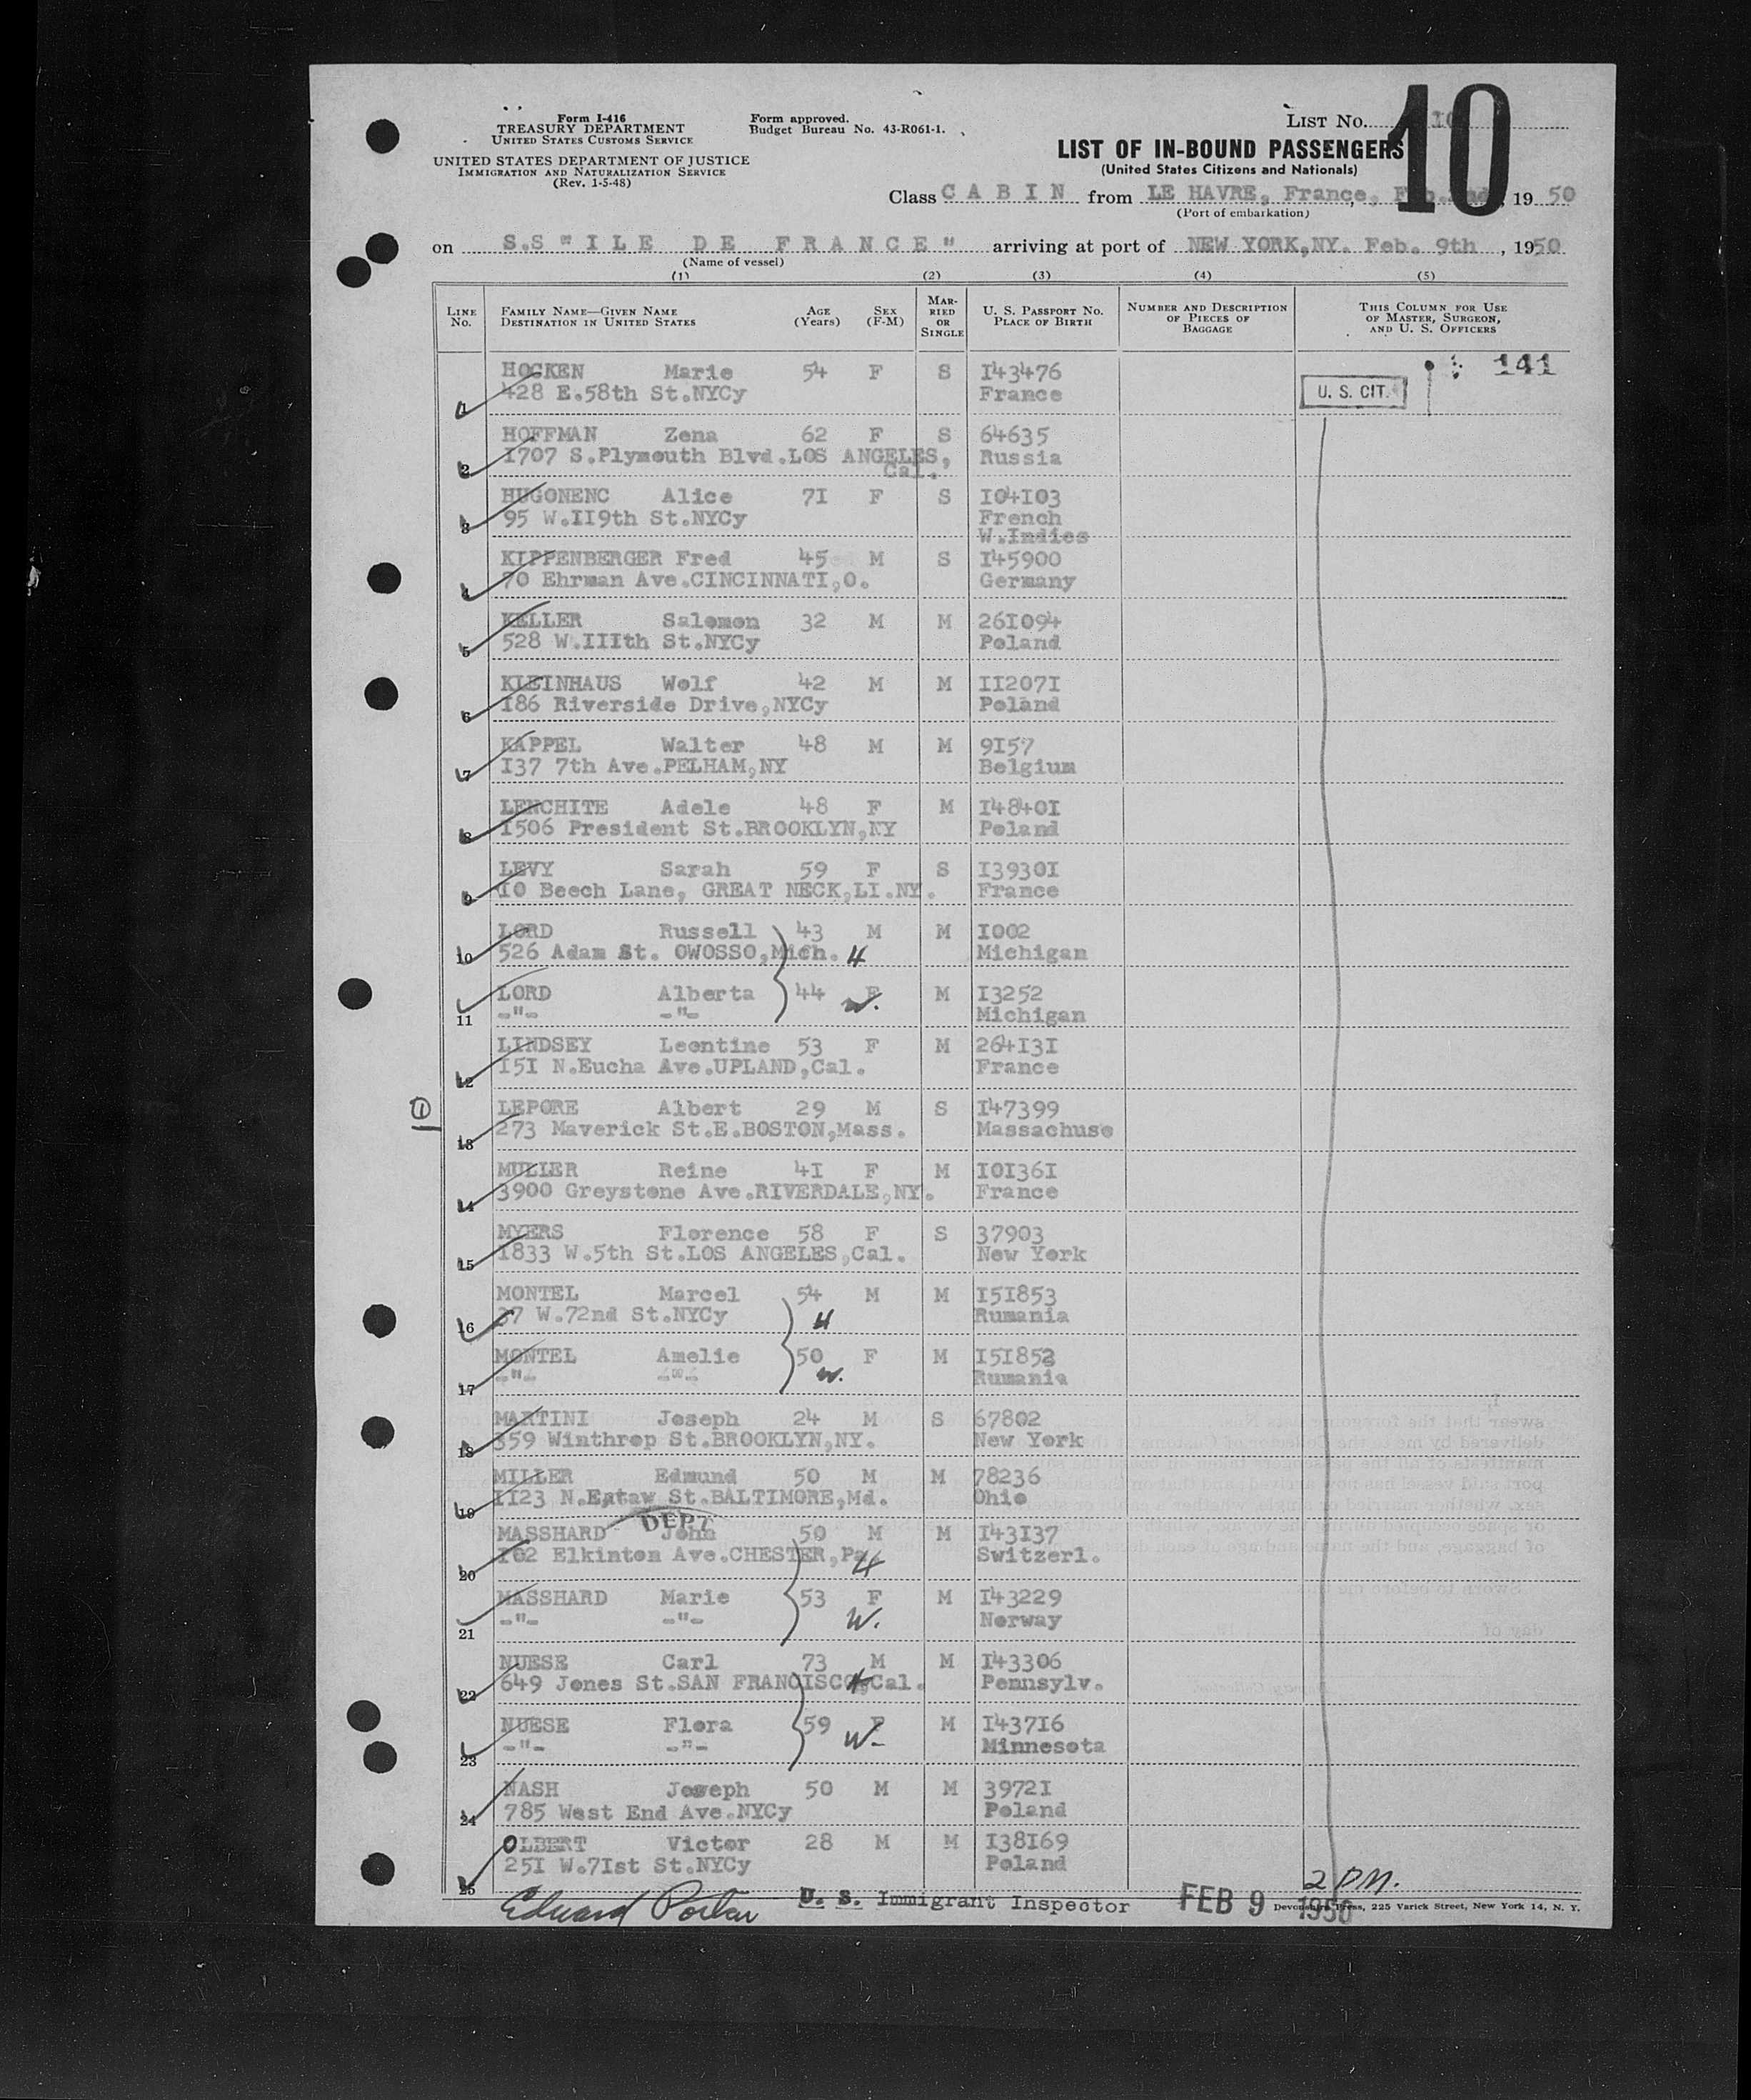 Form I-416
TREASURY DEPARTMENT
UNITED STATES CUSTOMS SERVICE
UNITED STATES DEPARTMENT OF JUSTICE
IMMIGRATION AND NATURALIZATION SERVICE
(Rev. 1-5-48)
Form approved.
Budget Bureau No. 43-R061-1.
LIST NO. 10
10
LIST OF IN-BOUND PASSENGERS
(United States Citizens and Nationals)
Class CABIN from LE HAVRE, France, 1950
(Port of embarkation)
on S.S "ILE DE FRANCE" arriving at port of NEW YORK,NY. Feb. 9th, 1950
(Name of vessel)
(1) (2) (3) (4) (5)
LINE NO. FAMILY NAME—GIVEN NAME DESTINATION IN UNITED STATES AGE (Years) SEX (F-M) MARRIED OR SINGLE U. S. PASSPORT NO. PLACE OF BIRTH NUMBER AND DESCRIPTION OF PIECES OF BAGGAGE THIS COLUMN FOR USE OF MASTER, SURGEON, AND U. S. OFFICERS
HOCKEN Marie 54 F S I43476 141
1 428 E.58th St.NYCy France U. S. CIT.
HOFFMAN Zena 62 F S 64635
2 I707 S.Plymouth Blvd.LOS ANGELES, Cal. Russia
HUGONENC Alice 7I F S I04I03
3 95 W.II9th St.NYCy French W.Indies
KIPPENBERGER Fred 45 M S I45900
4 70 Ehrman Ave.CINCINNATI,O. Germany
KELLER Salomon 32 M M 26I094
5 528 W.IIIth St.NYCy Poland
KLEINHAUS Wolf 42 M M II207I
6 I86 Riverside Drive,NYCy Poland
KAPPEL Walter 48 M M 9I57
7 I37 7th Ave.PELHAM,NY Belgium
LENCHITE Adele 48 F M I4840I
8 I506 President St.BROOKLYN,NY Poland
LEVY Sarah 59 F S I3930I
9 I0 Beech Lane, GREAT NECK,LI.NY. France
LORD Russell 43 M M I002
10 526 Adam St. OWOSSO,Mich. H Michigan
LORD Alberta 44 F W. M I3252
11 -"- -"- Michigan
LINDSEY Leontine 53 F M 264I3I
12 I5I N.Eucha Ave.UPLAND,Cal. France
LEPORE Albert 29 M S I47399
1 13 273 Maverick St.E.BOSTON,Mass. Massachuse
MULIER Reine 4I F M I0I36I
14 3900 Greystone Ave.RIVERDALE,NY. France
MYERS Florence 58 F S 37903
15 I833 W.5th St.LOS ANGELES,Cal. New York
MONTEL Marcel 54 M M I5I853
16 37 W.72nd St.NYCy H Rumania
MONTEL Amelie 50 F M I5I852
17 -"- -"- W. Rumania
MARTINI Joseph 24 M S 67802
18 359 Winthrop St.BROOKLYN,NY. New York
MILLER Edmund 50 M M 78236
19 II23 N.Eutaw St.BALTIMORE,Md. Ohio
DEPT
MASSHARD John 50 M M I43I37
20 I02 Elkinton Ave.CHESTER,Pa. H Switzerl.
MASSHARD Marie 53 F M I43229
21 -"- -"- W. Norway
NUESE Carl 73 M M I43306
22 649 Jones St.SAN FRANCISCO,Cal. H Pennsylv.
NUESE Flora 59 F M I437I6
23 -"- -"- W- Minnesota
NASH Joseph 50 M M 3972I
24 785 West End Ave.NYCy Poland
OLBERT Victor 28 M M I38I69
25 25I W.7Ist St.NYCy Poland
2 PM.
Edward Porter U. S. Immigrant Inspector FEB 9 1950 Devonshire Press, 225 Varick Street, New York 14, N. Y.